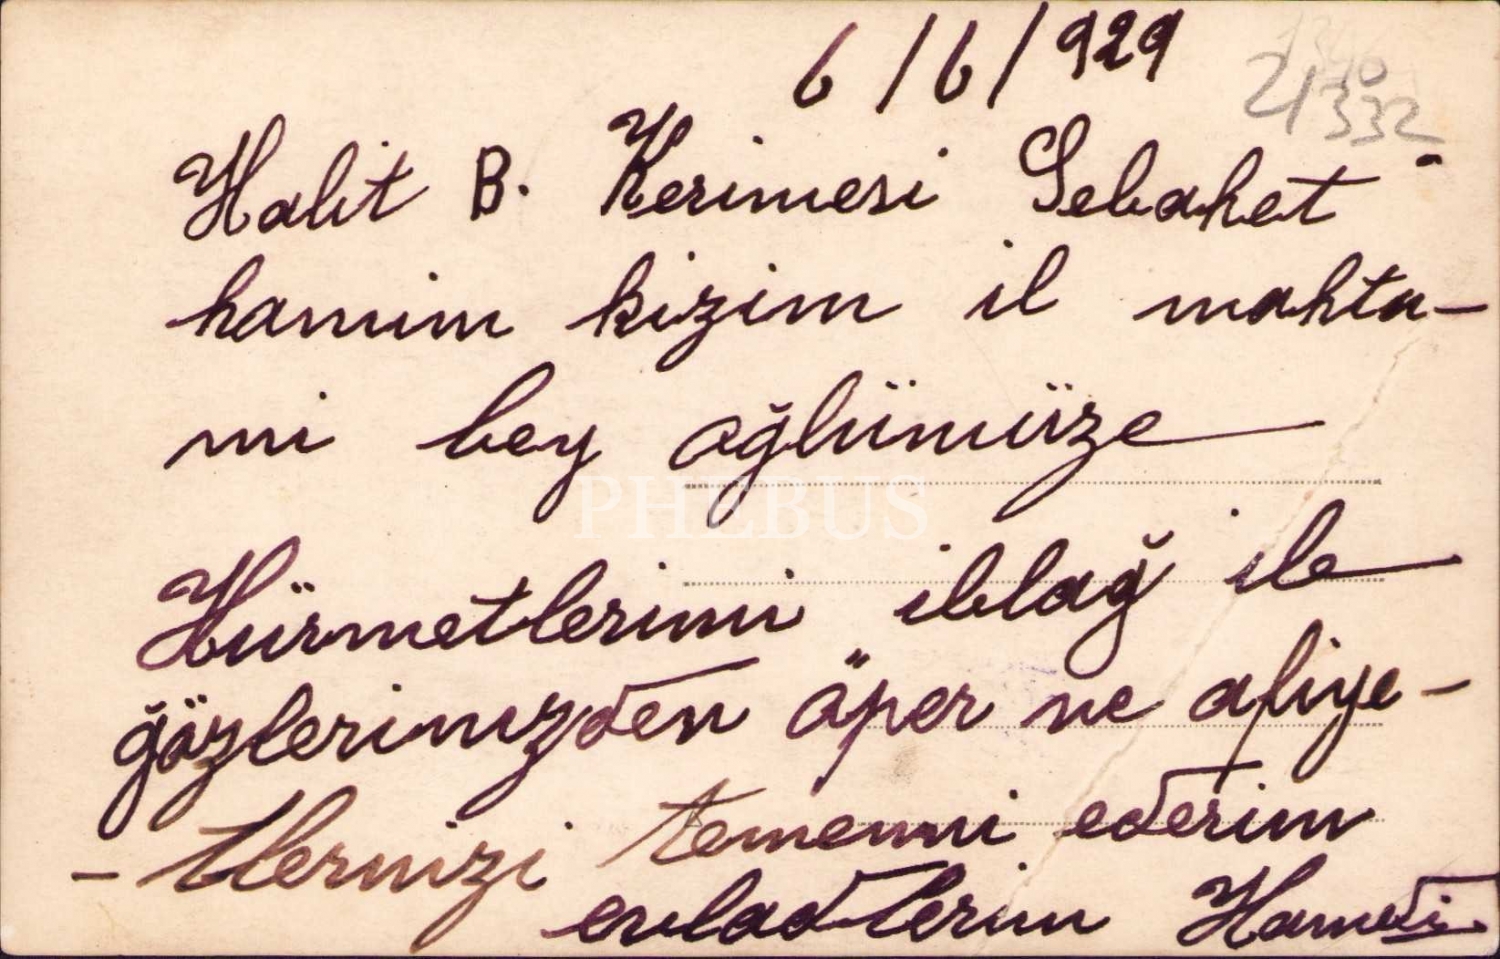 6/6/929
21332
Halit B. Kerimesi Sebahet
hanıim kizim il mahta-
mi bey oğlümüze
PHEBUS
Hürmetlerimi iblağ ile
gözlerinizden öper ve afiye-
-tlernizi temenni ederim
evladlerim Hamdi